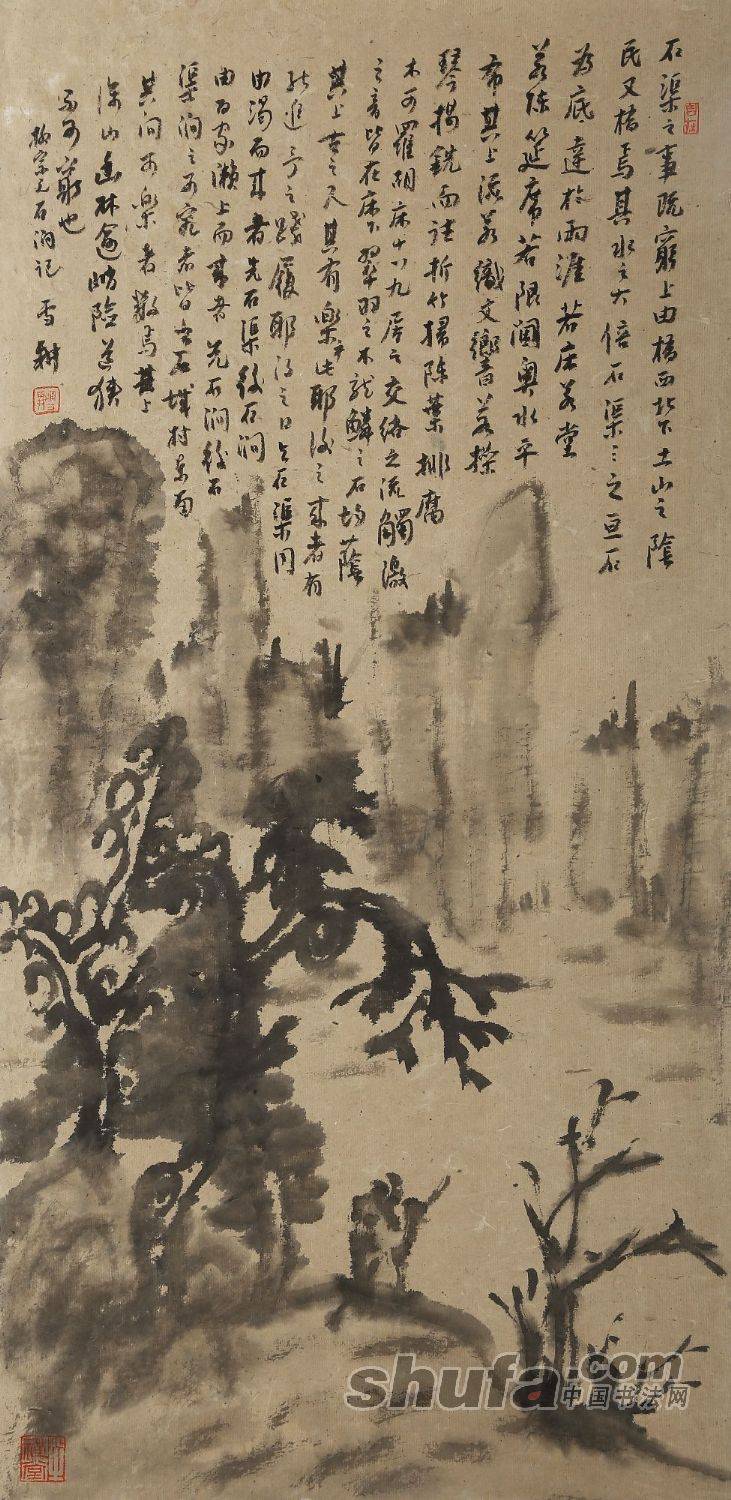 石渠之事既窮上由橋西北下土山之陰
民又橋焉其水之大倍石渠三之亘石
為底達於兩涯若床若堂
若陳筵席若限閫奧水平
布其上流若織文響音若操
琴揭銑而往折竹掃陳葉排腐
木可羅胡床十八九居之交絡之流觸激
之音皆在床下翠羽之木龍鱗之石均蔭
其上古之人其有樂乎此耶後之來者有
能追予之踐履耶得之日与石渠同
由渴而來者先石渠後石澗
由百家瀨上而來者先石澗後石
渠澗之可窮者皆出石城村東南
其間可樂者數焉其上
深山幽林逾峭險道狹
不可窮也
柳宗元石澗記 雪耕
shufa.com
中国书法网